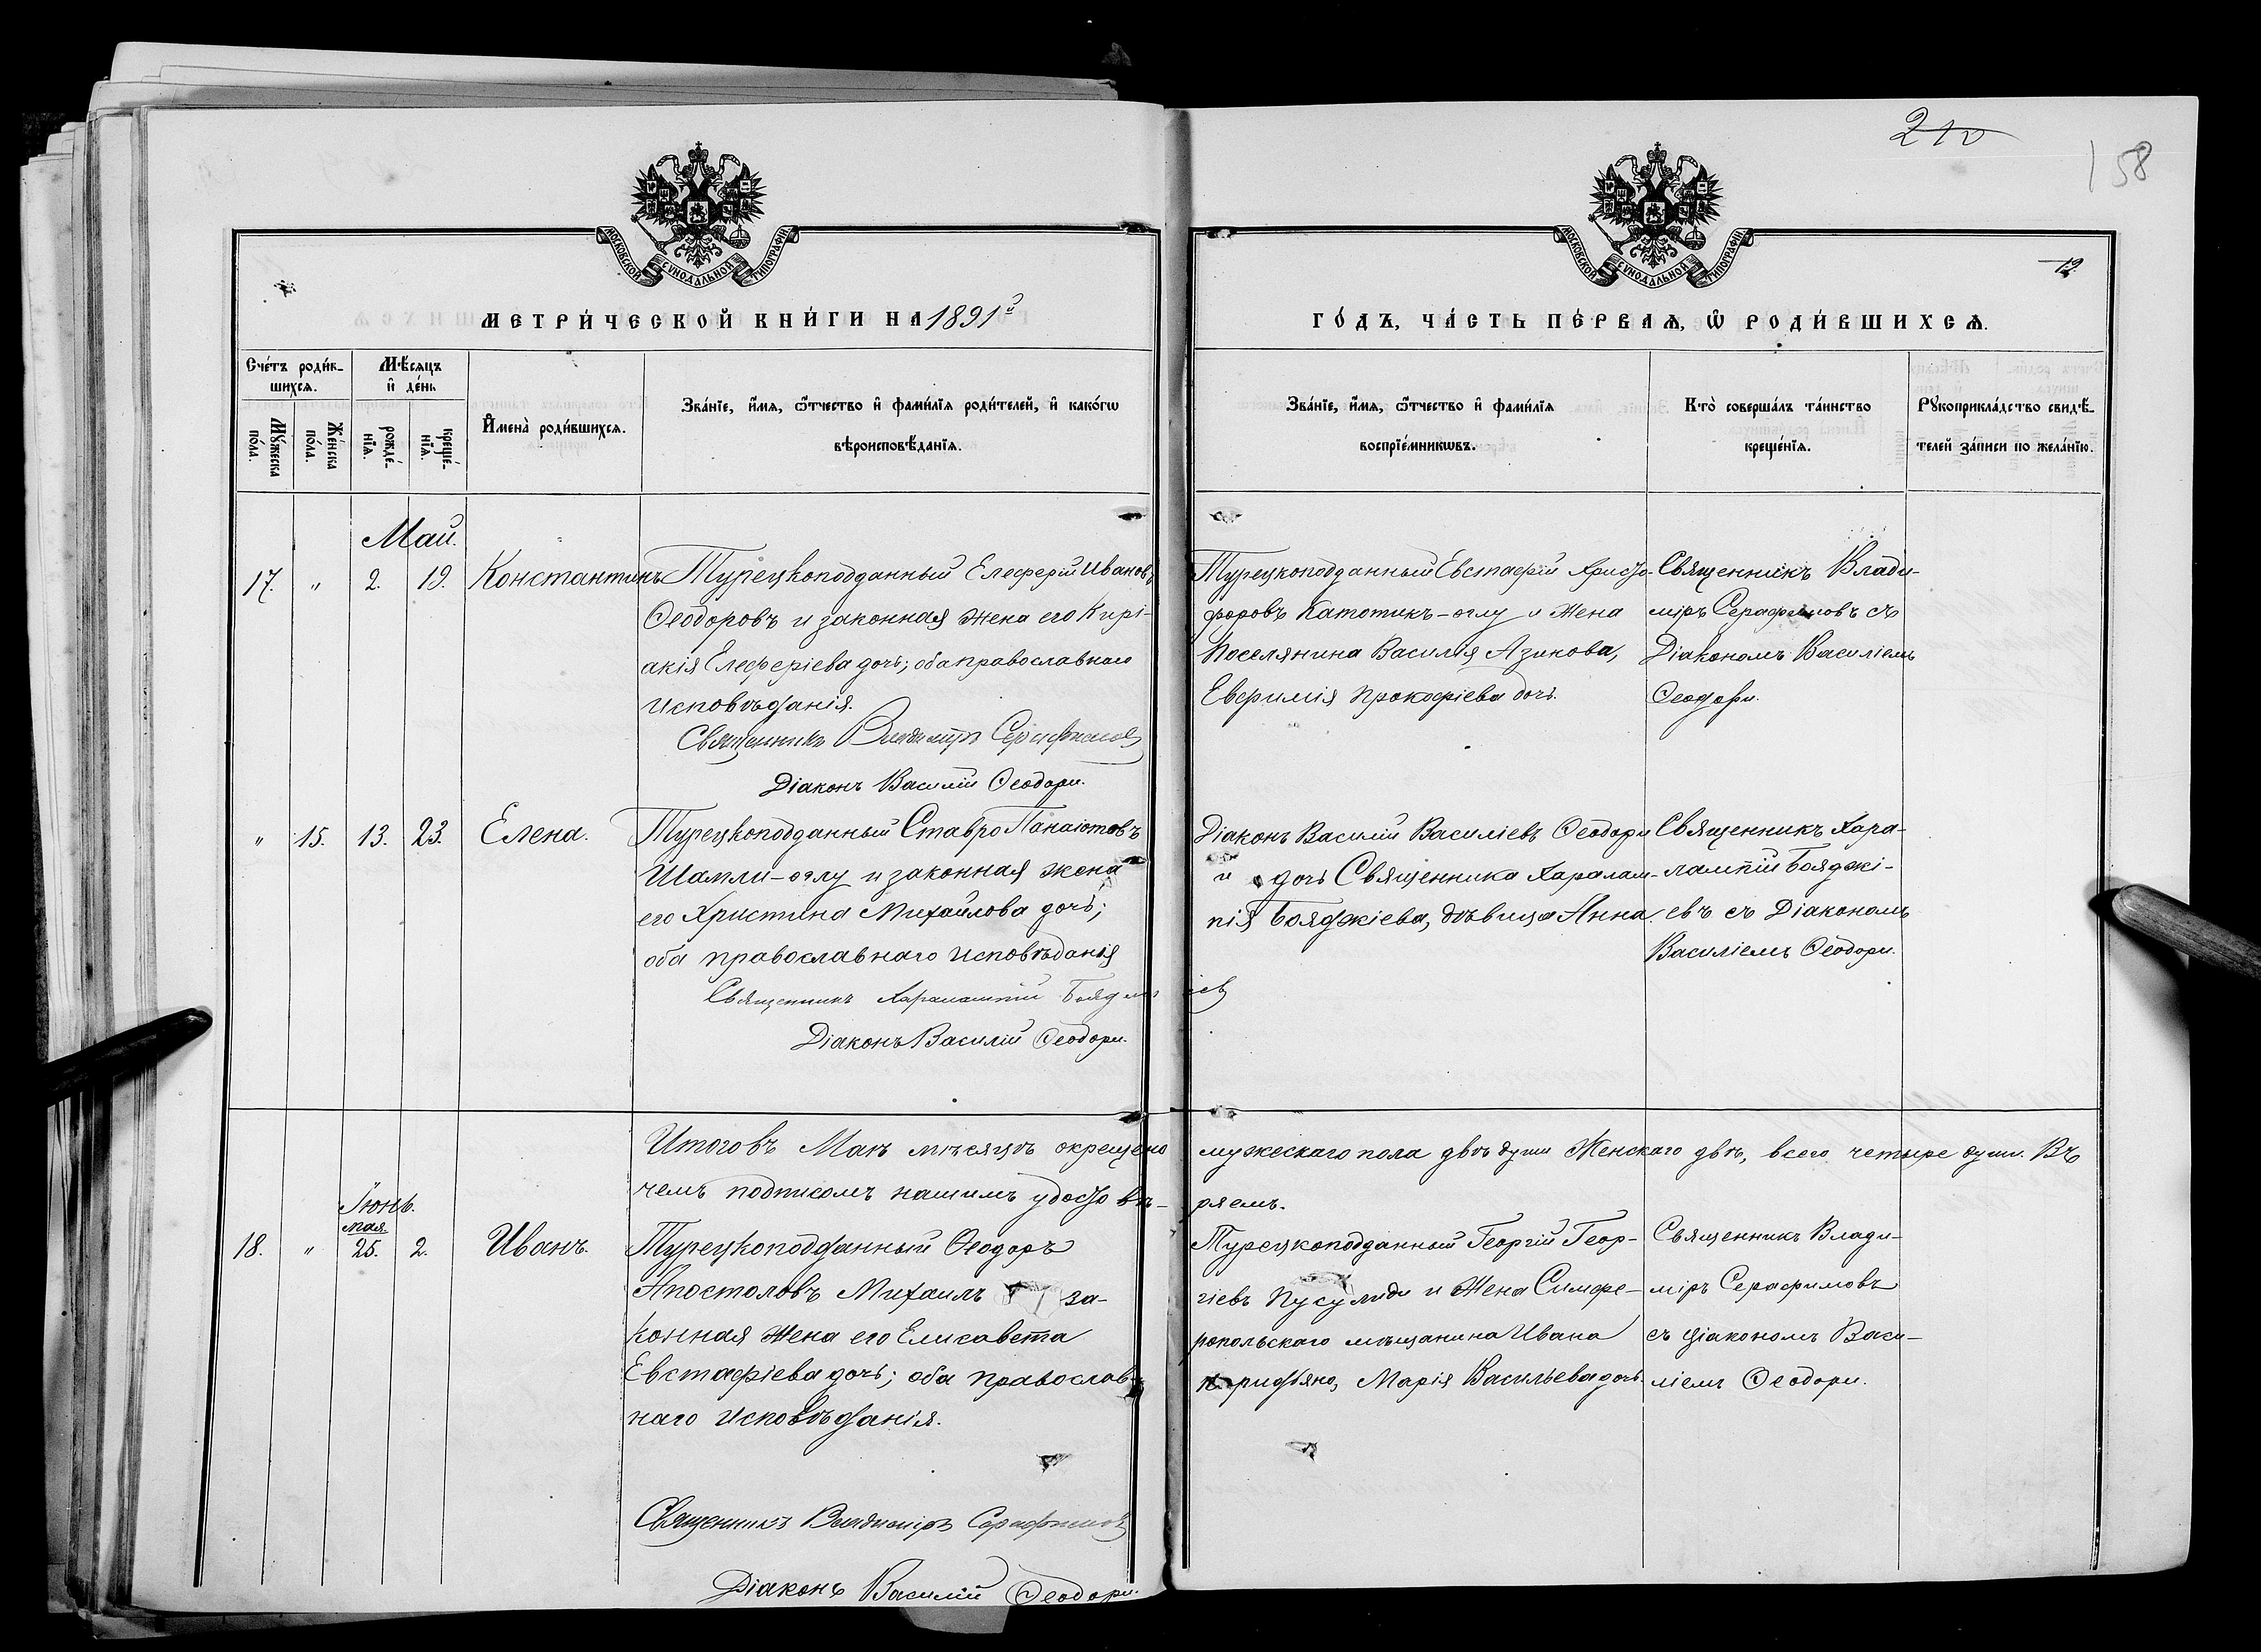 210
158
МОСКОВСКОЙ СѴНОДАЛЬНОЙ ТИПОГРАФІИ
МОСКОВСКОЙ СѴНОДАЛЬНОЙ ТИПОГРАФІИ
12.
МЕТРИ́ЧЕСКОЙ КНИ́ГИ НА 1891й
ГО́ДЪ, ЧА́СТЬ ПЕ́РВАѦ, Ѡ҆ РОДИ́ВШИХСѦ.
Сче́тъ роди́в-
шихсѧ.
Мꙋ́жеска по́ла.
Же́нска по́ла.
Мѣ́сяцъ
и҆ де́нь
рожде́-
нїѧ.
креще́-
нїѧ.
И҆мена̀ роди́вшихсѧ.
Зва́нїе, и҆́мѧ, ѻ҆́тчество и҆ фами́лїѧ роди́телей, и҆ како́гѡ
вѣроисповѣ́данїѧ.
Зва́нїе, и҆́мѧ, ѻ҆́тчество и҆ фами́лїѧ
воспрїе́мникѡвъ.
Кто̀ соверша́лъ та́инство
креще́нїѧ.
Рꙋкоприкла́дство свидѣ́-
телей за́писи по жела́нїю.
Май.
17. " 2. 19. Константинъ Турецкоподданный Елеферій Ивановъ
Ѳеодоровъ и законная жена его Кирі-
акія Елеферіева дочь; оба православнаго
исповѣданія.
Священникъ Владиміръ Серафимовъ
Діаконъ Василій Ѳеодори.
Турецкоподданный Евстафій Христо-
форовъ Катотикъ-оглу и жена
поселянина Василія Азикова,
Евфимія Прокофіева дочь.
Священникъ Влади-
міръ Серафимовъ съ
Діакономъ Василіемъ
Ѳеодори.
" 15. 13. 23. Елена. Турецкоподданный Ставро Панаіотовъ
Шамли-оглу и законная жена
его Христина Михайлова дочь;
оба православнаго исповѣданія
Священникъ Харалампій Бояджіев
Діаконъ Василій Ѳеодори.
Діаконъ Василій Василіевъ Ѳеодори
и дочь Священника Харалам-
пія Бояджіева, дѣвица Анна.
Священникъ Хара-
лампій Бояджі-
евъ съ Діакономъ
Василіемъ Ѳеодори.
Итогоъ Маѣ мѣсяцѣ окрещено мужескаго пола двѣ души Женскаго двѣ, всего четыре души. Въ
чемъ подписомъ нашимъ удостовѣ-ряемъ.
Іюнь.
мая.
18. " 25. 2. Иванъ. Турецкоподданный Ѳеодоръ
Апостоловъ Михаилъ за-
конная жена его Елисавета
Евстафіева дочь; оба православ-
наго исповѣданія.
Священникъ Владиміръ Серафимовъ
Діаконъ Василій Ѳеодори.
Турецкоподданный Георгій Геор-
гіевъ и жена Симфе-
ропольскаго мѣщанина Ивана
Марія Васильева дочь.
Священникъ Влади-
міръ Серафимовъ
съ діакономъ Васи-
ліемъ Ѳеодори.